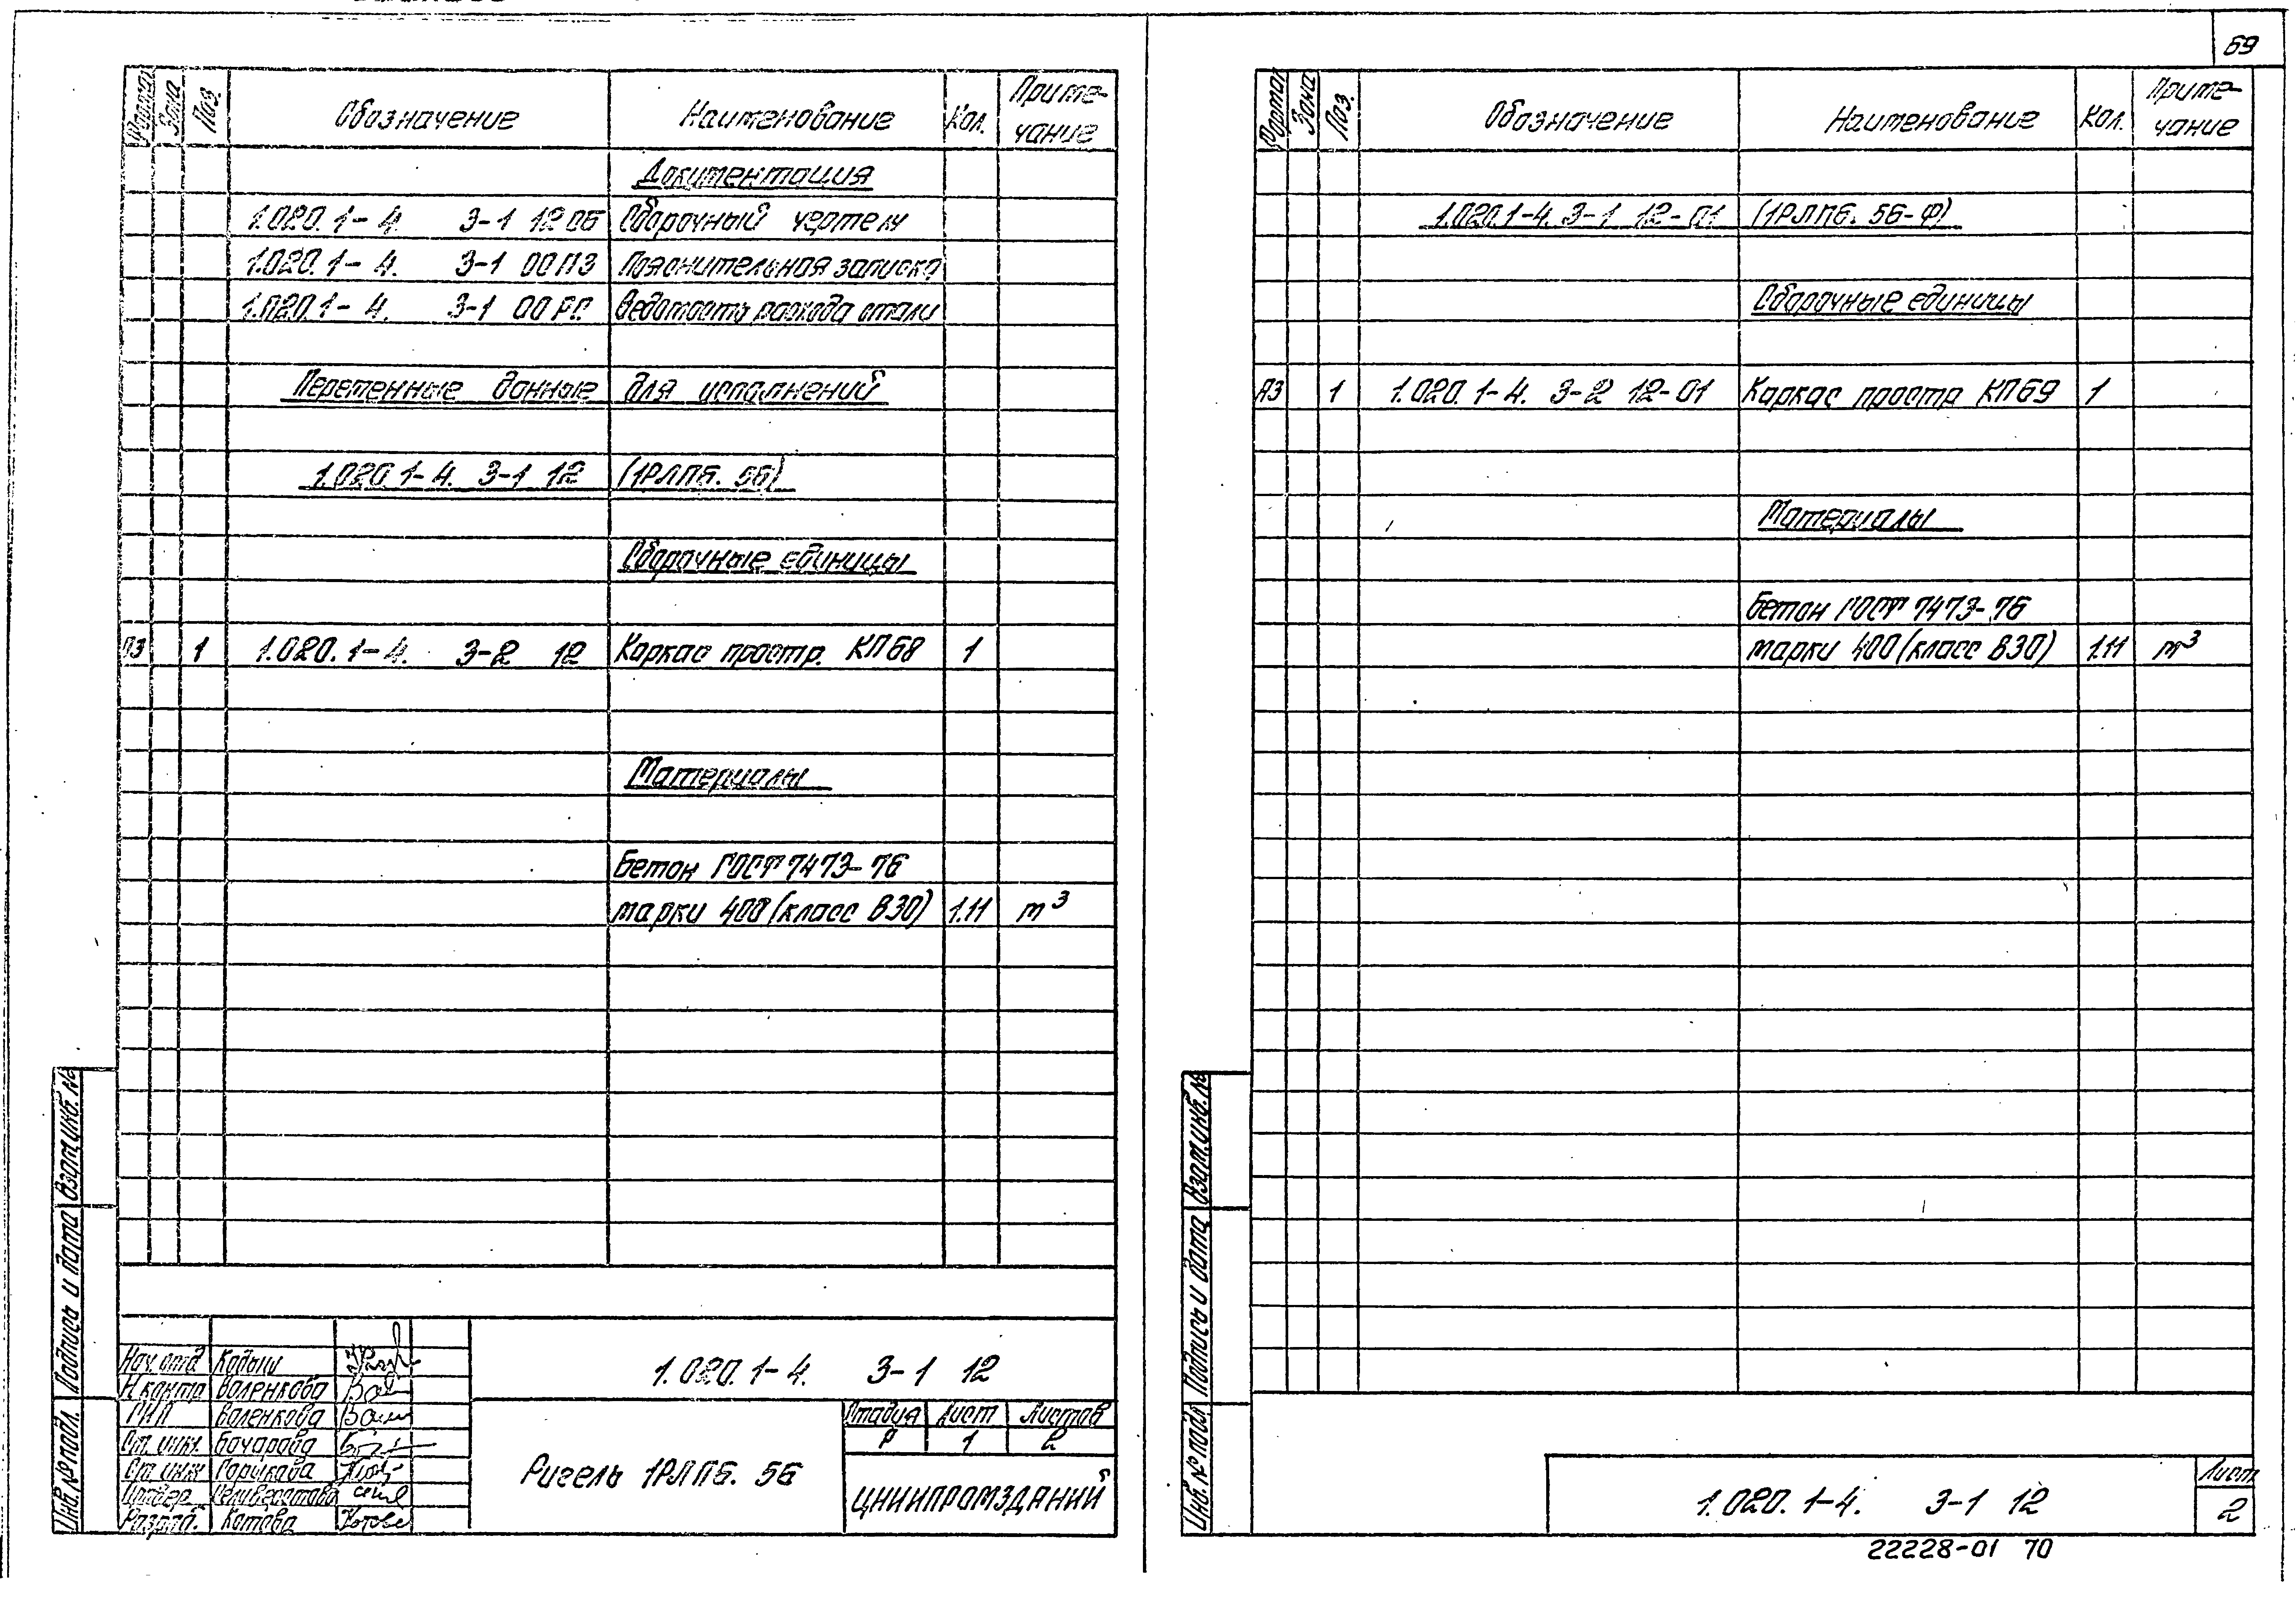 Формат Зона Поз. Обозначение Наименование Кол. Приме-
чание
Документация
1.020.1-4. 3-1 12 СБ Сборочный чертеж
1.020.1-4. 3-1 00 ПЗ Пояснительная записка
1.020.1-4. 3-1 00 РС Ведомость расхода стали
Переменные данные для исполнений
1.020.1-4. 3-1 12 (1РЛП6. 56)
Сборочные единицы
А3 1 1.020.1-4. 3-2 12 Каркас простр. КП68 1
Материалы
Бетон ГОСТ 7473-76
марки 400 (класс В30) 1.11 m³
Взам.инв.№
Подпись и дата
Инв.№ подл.
Нач.отд Кодыш
Н.контр. Валенкова
ГИП Валенкова
Ст.инж.
Ст.инж
Разраб. Котова
1.020.1-4. 3-1 12
Ригель 1РЛП6. 56
Стадия Лист Листов
Р 1 2
ЦНИИПРОМЗДАНИЙ
69
Формат Зона Поз. Обозначение Наименование Кол. Приме-
чание
1.020.1-4. 3-1 12-01 (1РЛП6. 56-Ф)
Сборочные единицы
А3 1 1.020.1-4. 3-2 12-01 Каркас простр КП69 1
Материалы
Бетон ГОСТ 7473-76
марки 400 (класс В30) 1.11 m³
Взам.инв.№
Подпись и дата
Инв.№ подл
1.020.1-4. 3-1 12
Лист
2
22228-01 70